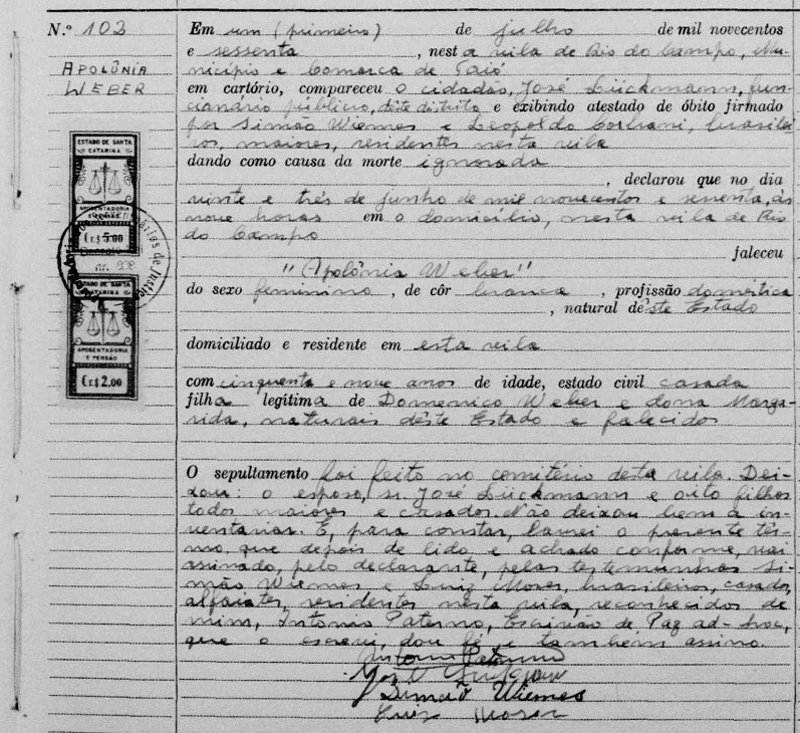 N.º 103
APOLÔNIA
WEBER
ESTADO DE SANTA
CATARINA
APOSENTADORIA
Cr$ 5,00
ESTADO DE SANTA
CATARINA
APOSENTADORIA
E PENSÃO
Cr$ 2,00
Em um (primeiro) de julho de mil novecentos
e sessenta, nesta vila de Rio do Campo, Mu-
nicípio e Comarca de Taió
em cartório, compareceu o cidadão, José Lückmann, fun-
cionário público, dêste distrito e exibindo atestado de óbito firmado
por Simão Wiemes e Leopoldo, brasilei-
ros, maiores, residentes nesta vila
dando como causa da morte ignorada
, declarou que no dia
vinte e três de junho de mil novecentos e sessenta, às
nove horas em o domicílio, nesta vila de Rio
do Campo
faleceu
"Apolônia Weber"
do sexo feminino, de côr branca, profissão doméstica
, natural dêste Estado
domiciliado e residente em esta vila
com cinquenta e nove anos de idade, estado civil casada
filha legítima de Domenico Weber e dona Marga-
rida, naturais dêste Estado e falecidos
O sepultamento foi feito no cemitério desta vila. Dei-
xou: o esposo, sr. José Lückmann e oito filhos
todos maiores e casados. Não deixou bens a in-
ventariar. E, para constar, lavrei o presente têr-
mo que depois de lido e achado conforme, vai
assinado, pelo declarante, pelas testemunhas Si-
mão Wiemes e Luiz Moser, brasileiros, casados,
alfaiates, residentes nesta vila, reconhecidos de
mim, Antonio Paterno, Escrivão de Paz ad-hoc,
que o escrevi, dou fé e também assino.
Antonio Paterno
José Lückmann
Simão Wiemes
Luiz Moser